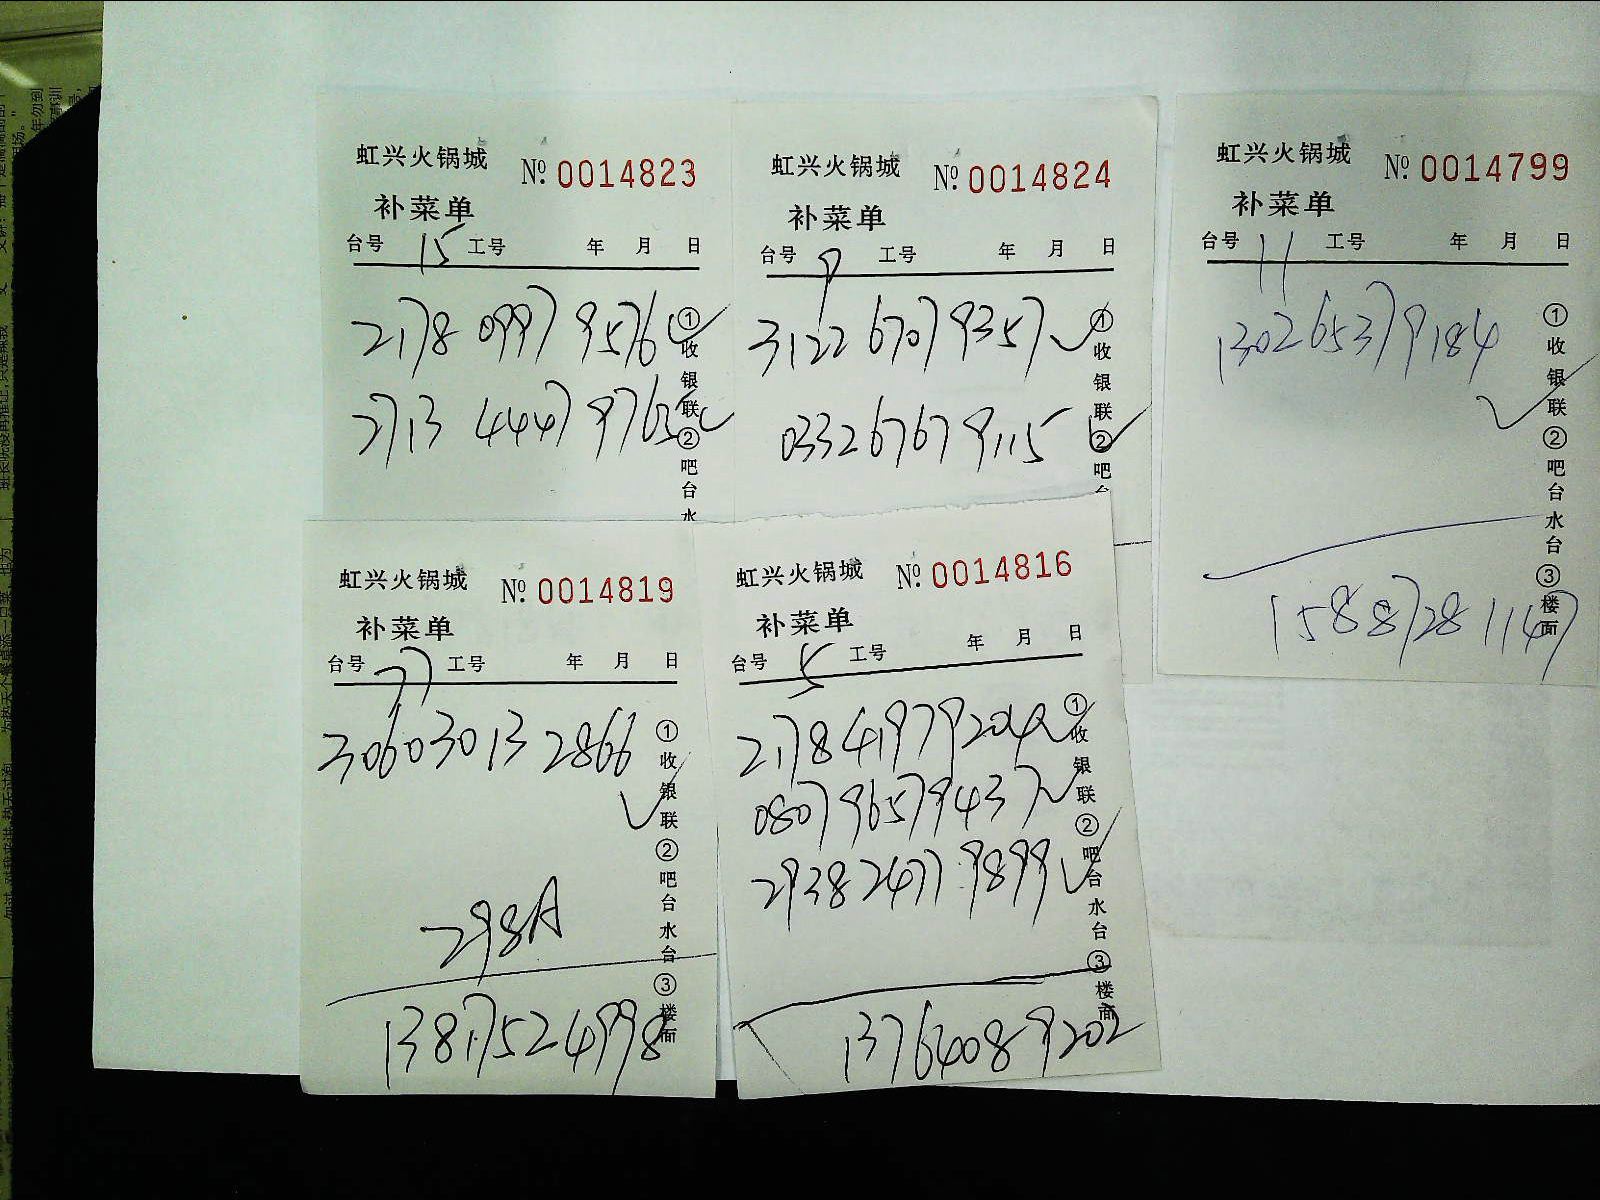 虹兴火锅城 No. 0014823
补菜单
台号 15 工号 年 月 日
2178 0997 9576
2713 4447 9763
①收银联②吧台水
虹兴火锅城 No. 0014824
补菜单
台号 9 工号 年 月 日
3122 6707 9357
0332 6767 9115
①收银联②吧台
虹兴火锅城 No. 0014799
补菜单
台号 11 工号 年 月 日
1302 6537 9184
①收银联②吧台水台③楼面
15887281147
虹兴火锅城 No. 0014819
补菜单
台号 77 工号 年 月 日
3060 3013 2866
①收银联②吧台水台③楼面
298A
13817524998
虹兴火锅城 No. 0014816
补菜单
台号 5 工号 年 月 日
2178 4197 9204
0807 9657 9437
2938 2477 9899
①收银联②吧台水台③楼面
13764089202